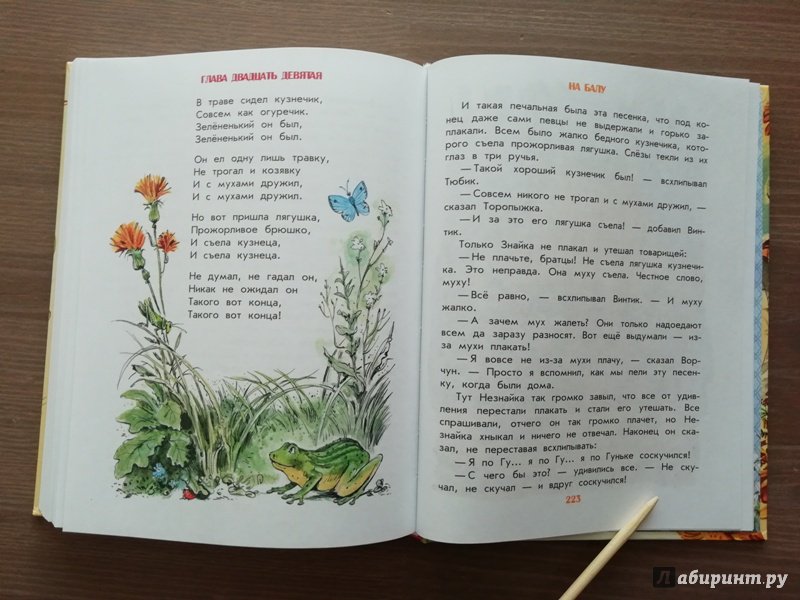 ГЛАВА ДВАДЦАТЬ ДЕВЯТАЯ
В траве сидел кузнечик,
Совсем как огуречик.
Зелёненький он был,
Зелёненький он был.
Он ел одну лишь травку,
Не трогал и козявку
И с мухами дружил,
И с мухами дружил.
Но вот пришла лягушка,
Прожорливое брюшко,
И съела кузнеца,
И съела кузнеца.
Не думал, не гадал он,
Никак не ожидал он
Такого вот конца,
Такого вот конца!
НА БАЛУ
И такая печальная была эта песенка, что под ко-
нец даже сами певцы не выдержали и горько за-
плакали. Всем было жалко бедного кузнечика, кото-
рого съела прожорливая лягушка. Слёзы текли из их
глаз в три ручья.
— Такой хороший кузнечик был! — всхлипывал
Тюбик.
— Совсем никого не трогал и с мухами дружил, —
сказал Торопыжка.
— И за это его лягушка съела! — добавил Вин-
тик.
Только Знайка не плакал и утешал товарищей:
— Не плачьте, братцы! Не съела лягушка кузнечи-
ка. Это неправда. Она муху съела. Честное слово,
муху!
— Всё равно, — всхлипывал Винтик. — И муху
жалко.
— А зачем мух жалеть? Они только надоедают
всем да заразу разносят. Вот ещё выдумали — из-
за мухи плакать!
— Я вовсе не из-за мухи плачу, — сказал Вор-
чун. — Просто я вспомнил, как мы пели эту песен-
ку, когда были дома.
Тут Незнайка так громко завыл, что все от удив-
ления перестали плакать и стали его утешать. Все
спрашивали, отчего он так громко плачет, но Не-
знайка хныкал и ничего не отвечал. Наконец он ска-
зал, не переставая всхлипывать:
— Я по Гу... я по Гу... я по Гуньке соскучился!
— С чего бы это? — удивились все. — Не ску-
чал, не скучал — и вдруг соскучился!
223
Лабиринт.ру